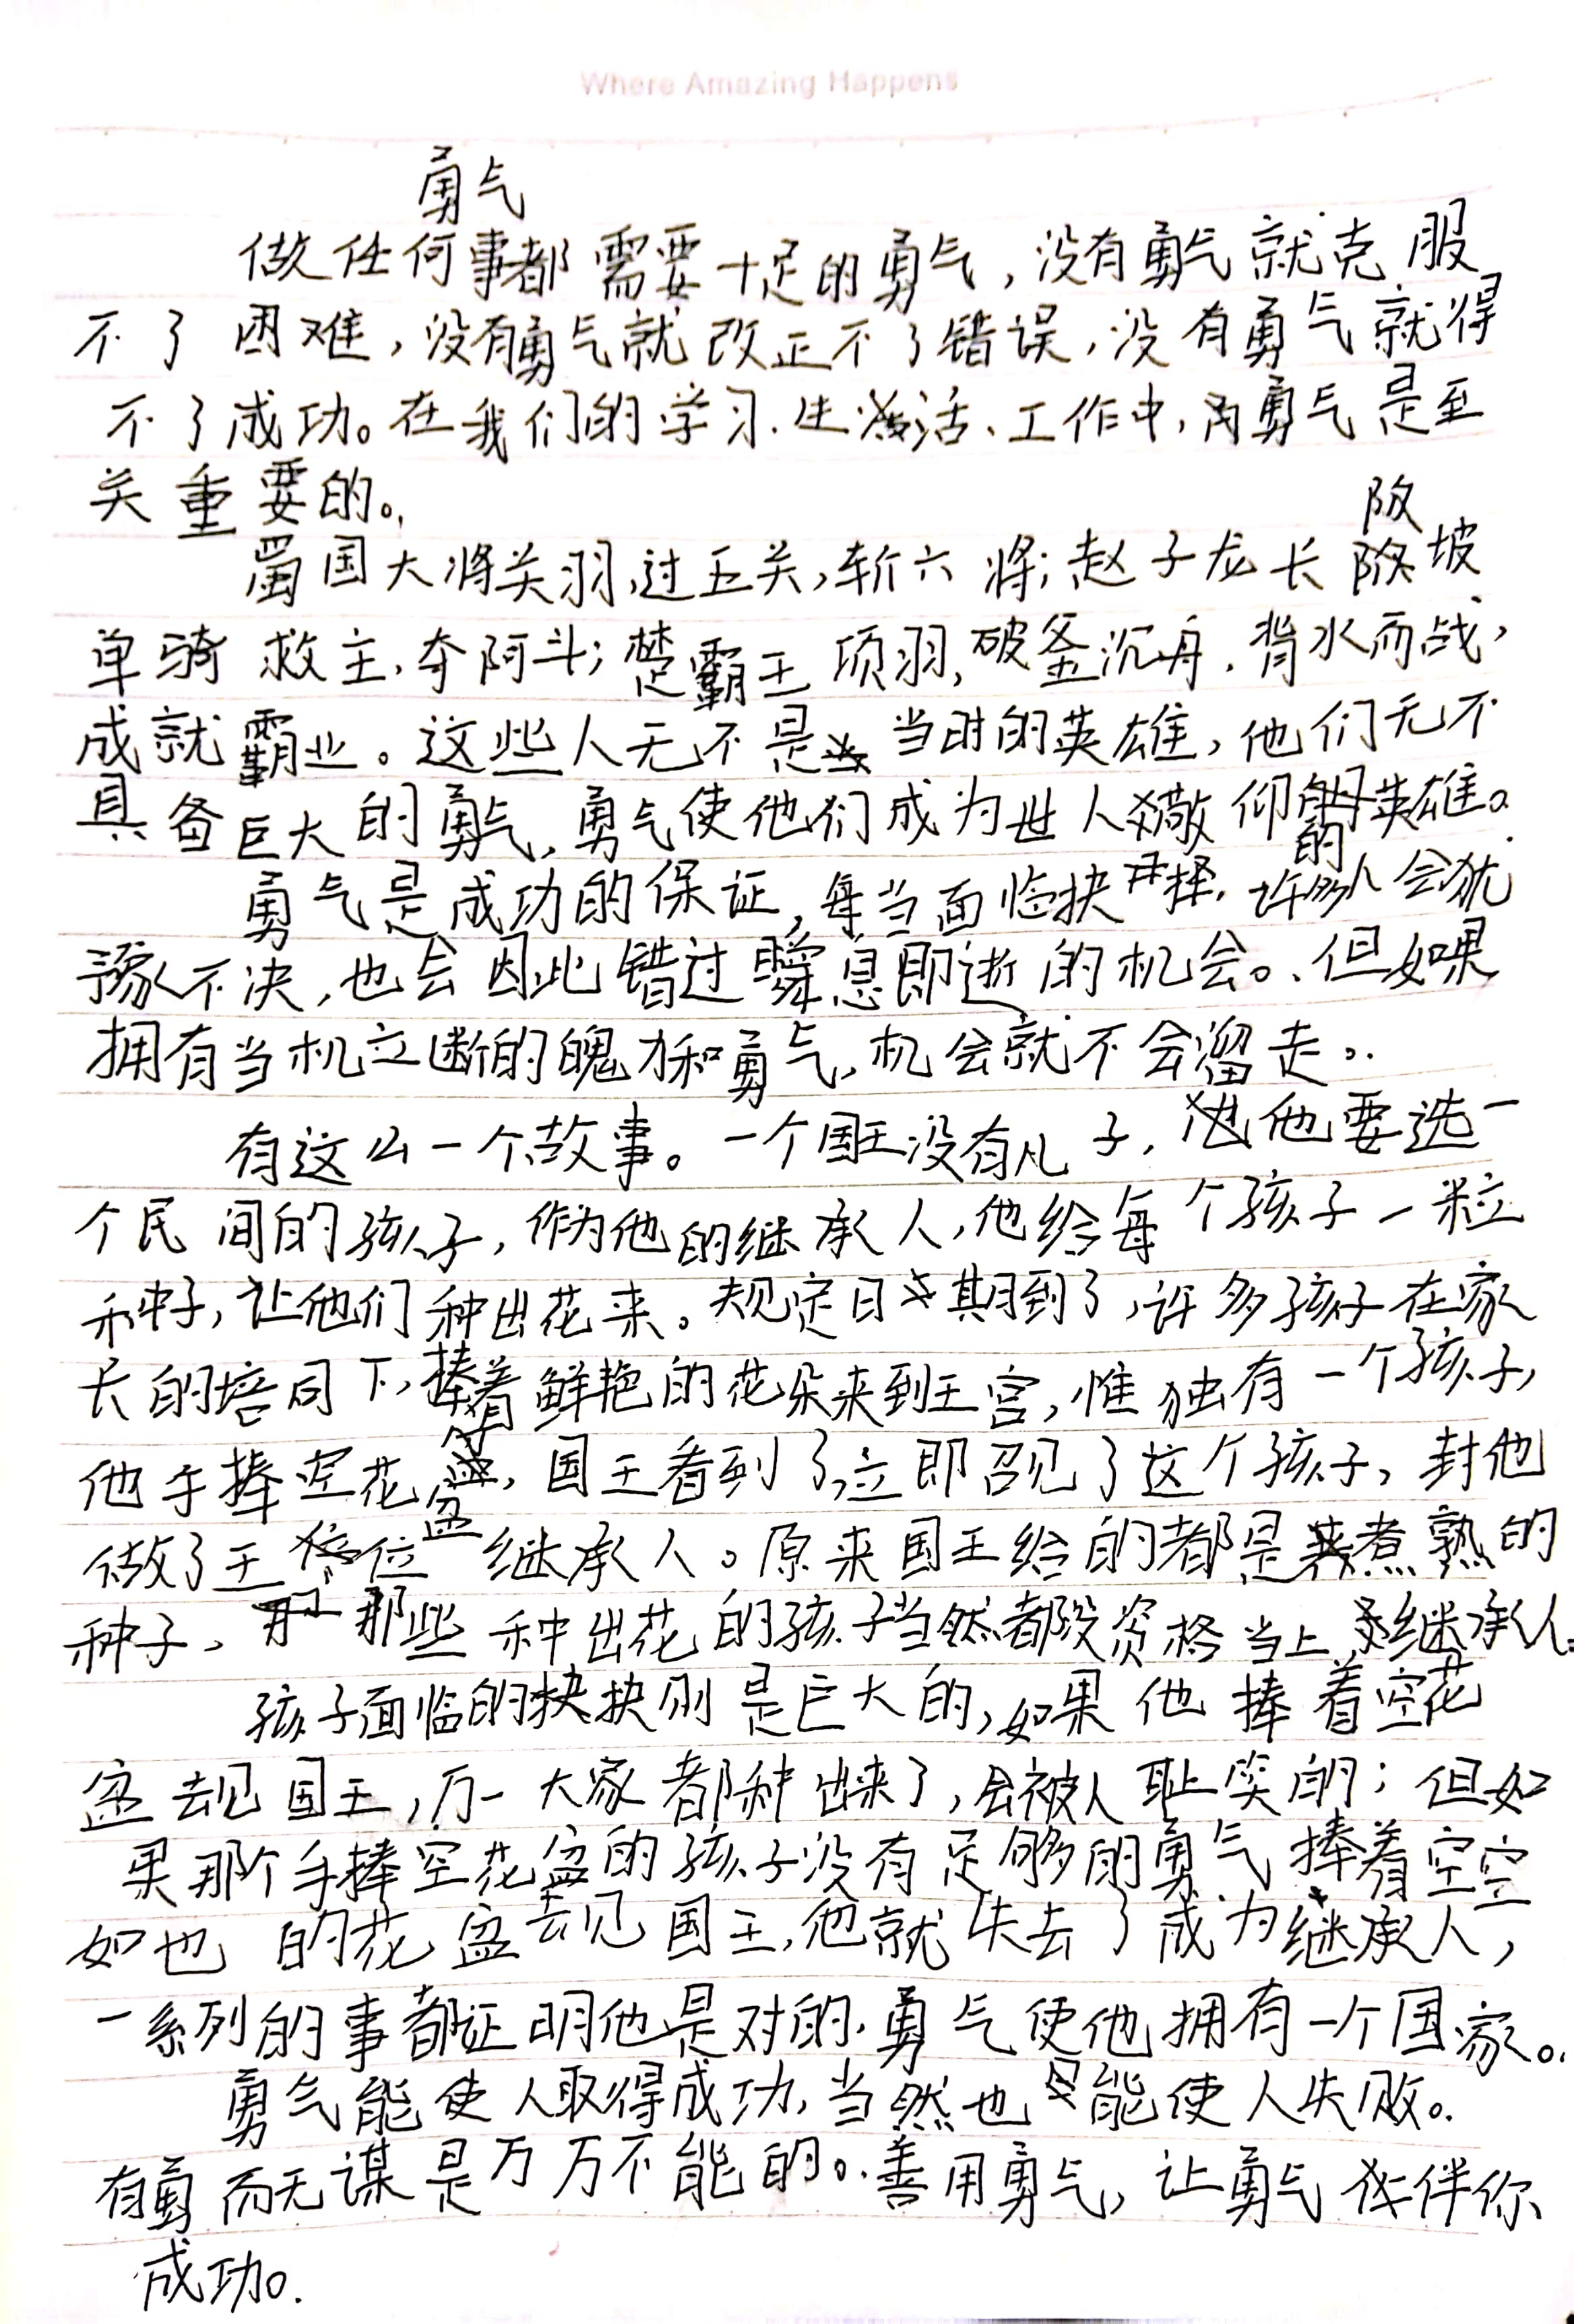 Where Amazing Happens
勇气
做任何事都需要十足的勇气，没有勇气就克服
不了困难，没有勇气就改正不了错误，没有勇气就得
不了成功。在我们的学习、生活、工作中，勇气是至
关重要的。
蜀国大将关羽，过五关，斩六将；赵子龙长阪坡
单骑救主，夺阿斗；楚霸王项羽，破釜沉舟，背水而战，
成就霸业。这些人无不是当时的英雄，他们无不
具备巨大的勇气，勇气使他们成为世人敬仰的英雄。
勇气是成功的保证，每当面临抉择，许多人会犹
豫不决，也会因此错过瞬息即逝的机会。但如果
拥有当机立断的魄力和勇气，机会就不会溜走。
有这么一个故事。一个国王没有儿子，他要选一
个民间的孩子，作为他的继承人，他给每个孩子一粒
种子，让他们种出花来。规定日期到了，许多孩子在家
长的培同下，捧着鲜艳的花朵来到王宫，惟独有一个孩子，
他手捧空花盆，国王看到了，立即召见了这个孩子，封他
做了王位继承人。原来国王给的都是煮熟的
种子，那些种出花的孩子当然都没资格当上继承人。
孩子面临的抉则是巨大的，如果他捧着空花
盆去见国王，万一大家都种出来了，会被人耻笑的；但如
果那个手捧空花盆的孩子没有足够的勇气捧着空空
如也的花盆去见国王，他就失去了成为继承人，
一系列的事都证明他是对的，勇气使他拥有一个国家。
勇气能使人取得成功，当然也能使人失败。
有勇而无谋是万万不能的。善用勇气，让勇气伴你
成功。